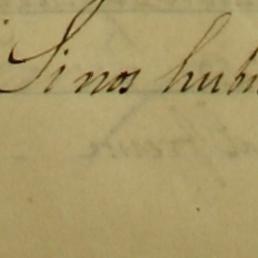 Si nos hubi